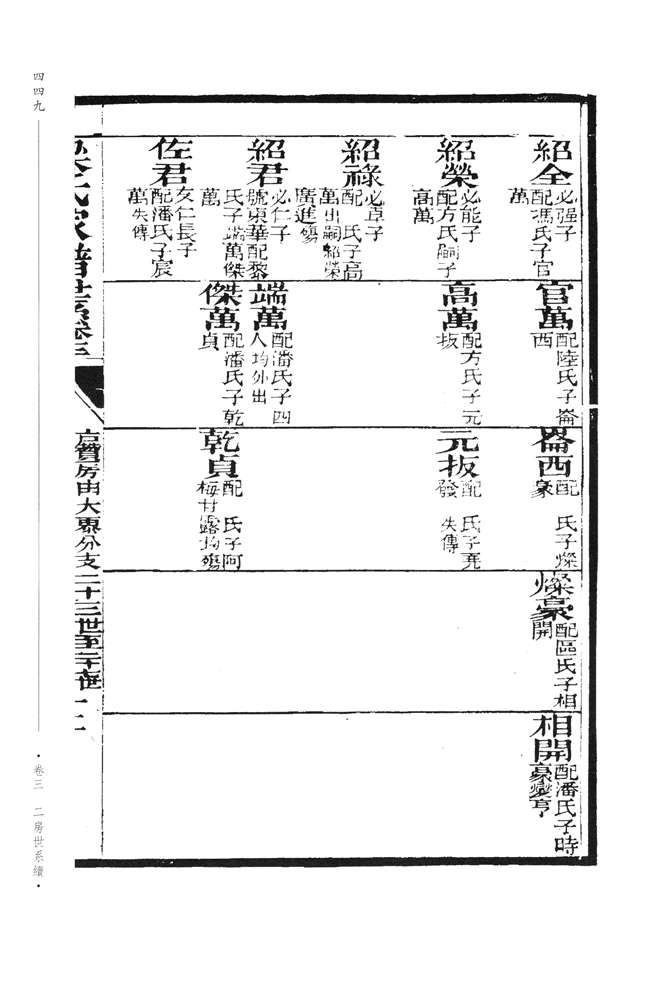 紹全
必强子
配馮氏子官
萬
紹榮
必能子
配方氏嗣子
高萬
紹祿
必卓子
配　氏子高
萬出嗣紹榮
廣進殤
紹君
必仁子
號東華配黎
氏子端萬傑
萬
佐君
友仁長子
配潘氏子宸
萬失傳
官萬
配陸氏子崙
西
高萬
配方氏子元
扳
端萬
配潘氏子四
人均外出
傑萬
配潘氏子乾
貞
崙西
配　氏子燦
豪
元扳
配　氏子堯
發　失傳
乾貞
配　氏子阿
梅甘露均殤
燦豪
配區氏子相
開
相開
配潘氏子時
豪燮亨
氏家譜世系卷三
房由大宗分支二十三世至二十世
四四九
·卷三　二房世系續·